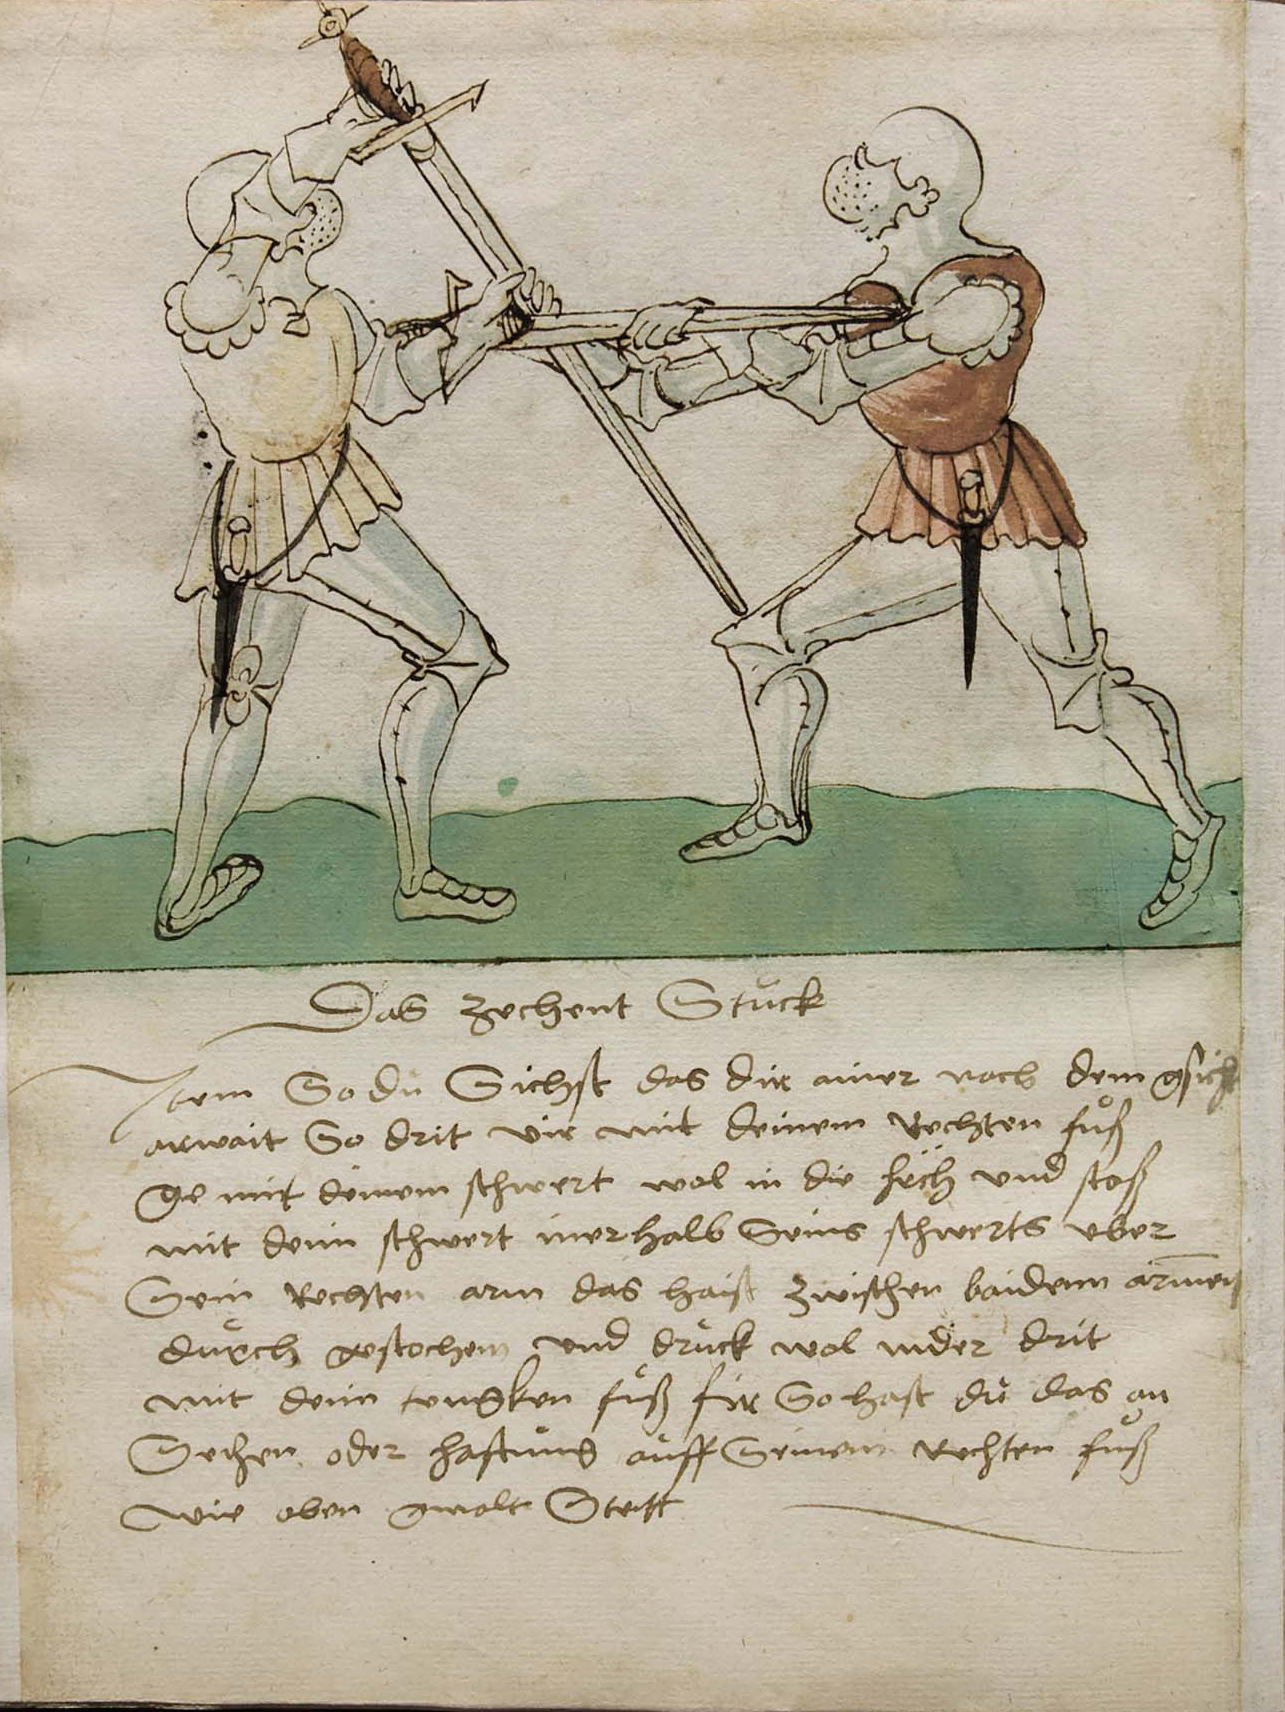 Das zechent Stuck
Item So du Sichst das dir ainer nach dem gsicht
arwait So drit vir mit deinem Rechten fuß
ge mit deinem schwert wol in die hech und stoß
mit deim schwert inerhalb Seins schwerts vber
Sein Rechten arm das haist zwischen baidenn armen
durch gestochen und druck wol nider drit
mit deim lengken fuß fir So hast du das an
Sechen oder hastung auff Seinem Rechten fuß
wie oben gmalt Stett